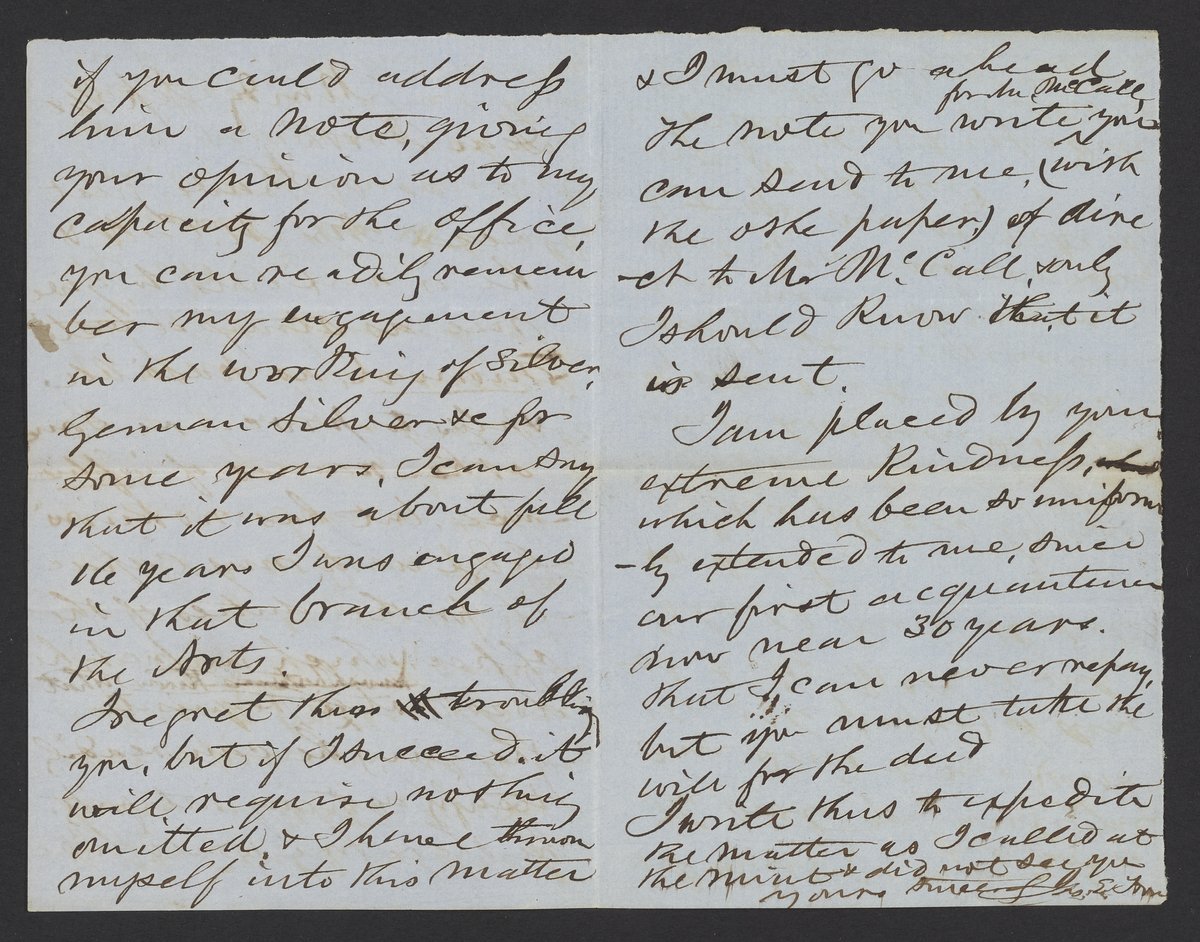 if you could address
him a note, giving
your opinion as to my
capacity for the office,
you can readily remem
ber my engagement
in the working of Silver,
German Silver &c for
some years, I can say
that it was about full
16 years I was engaged
in that branch of
the Arts.
I regret thus troubling
you, but if I succeed. it
will require nothing
omitted & I have thrown
myself into this matter
& I must go ahead
for Mr McCall,
the note you write you
can send to me, (with
the othe paper,) or dire
-ct to Mr McCall, & only
I should Know that it
is sent.
I am placed by your
extreme Kindness,
which has been so uniform
-ly extended to me, since
our first acquantence
now near 30 years.
that I can never repay,
but you must take the
will for the deed
I write thus to expedite
the matter as I called at
the mint & did not see you
yours sincerely